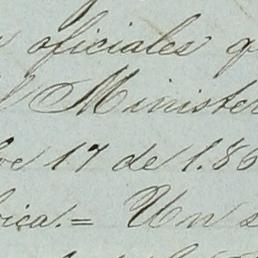 oficiales q
l Minister
bre 17 de 1.86
rica.= Un s